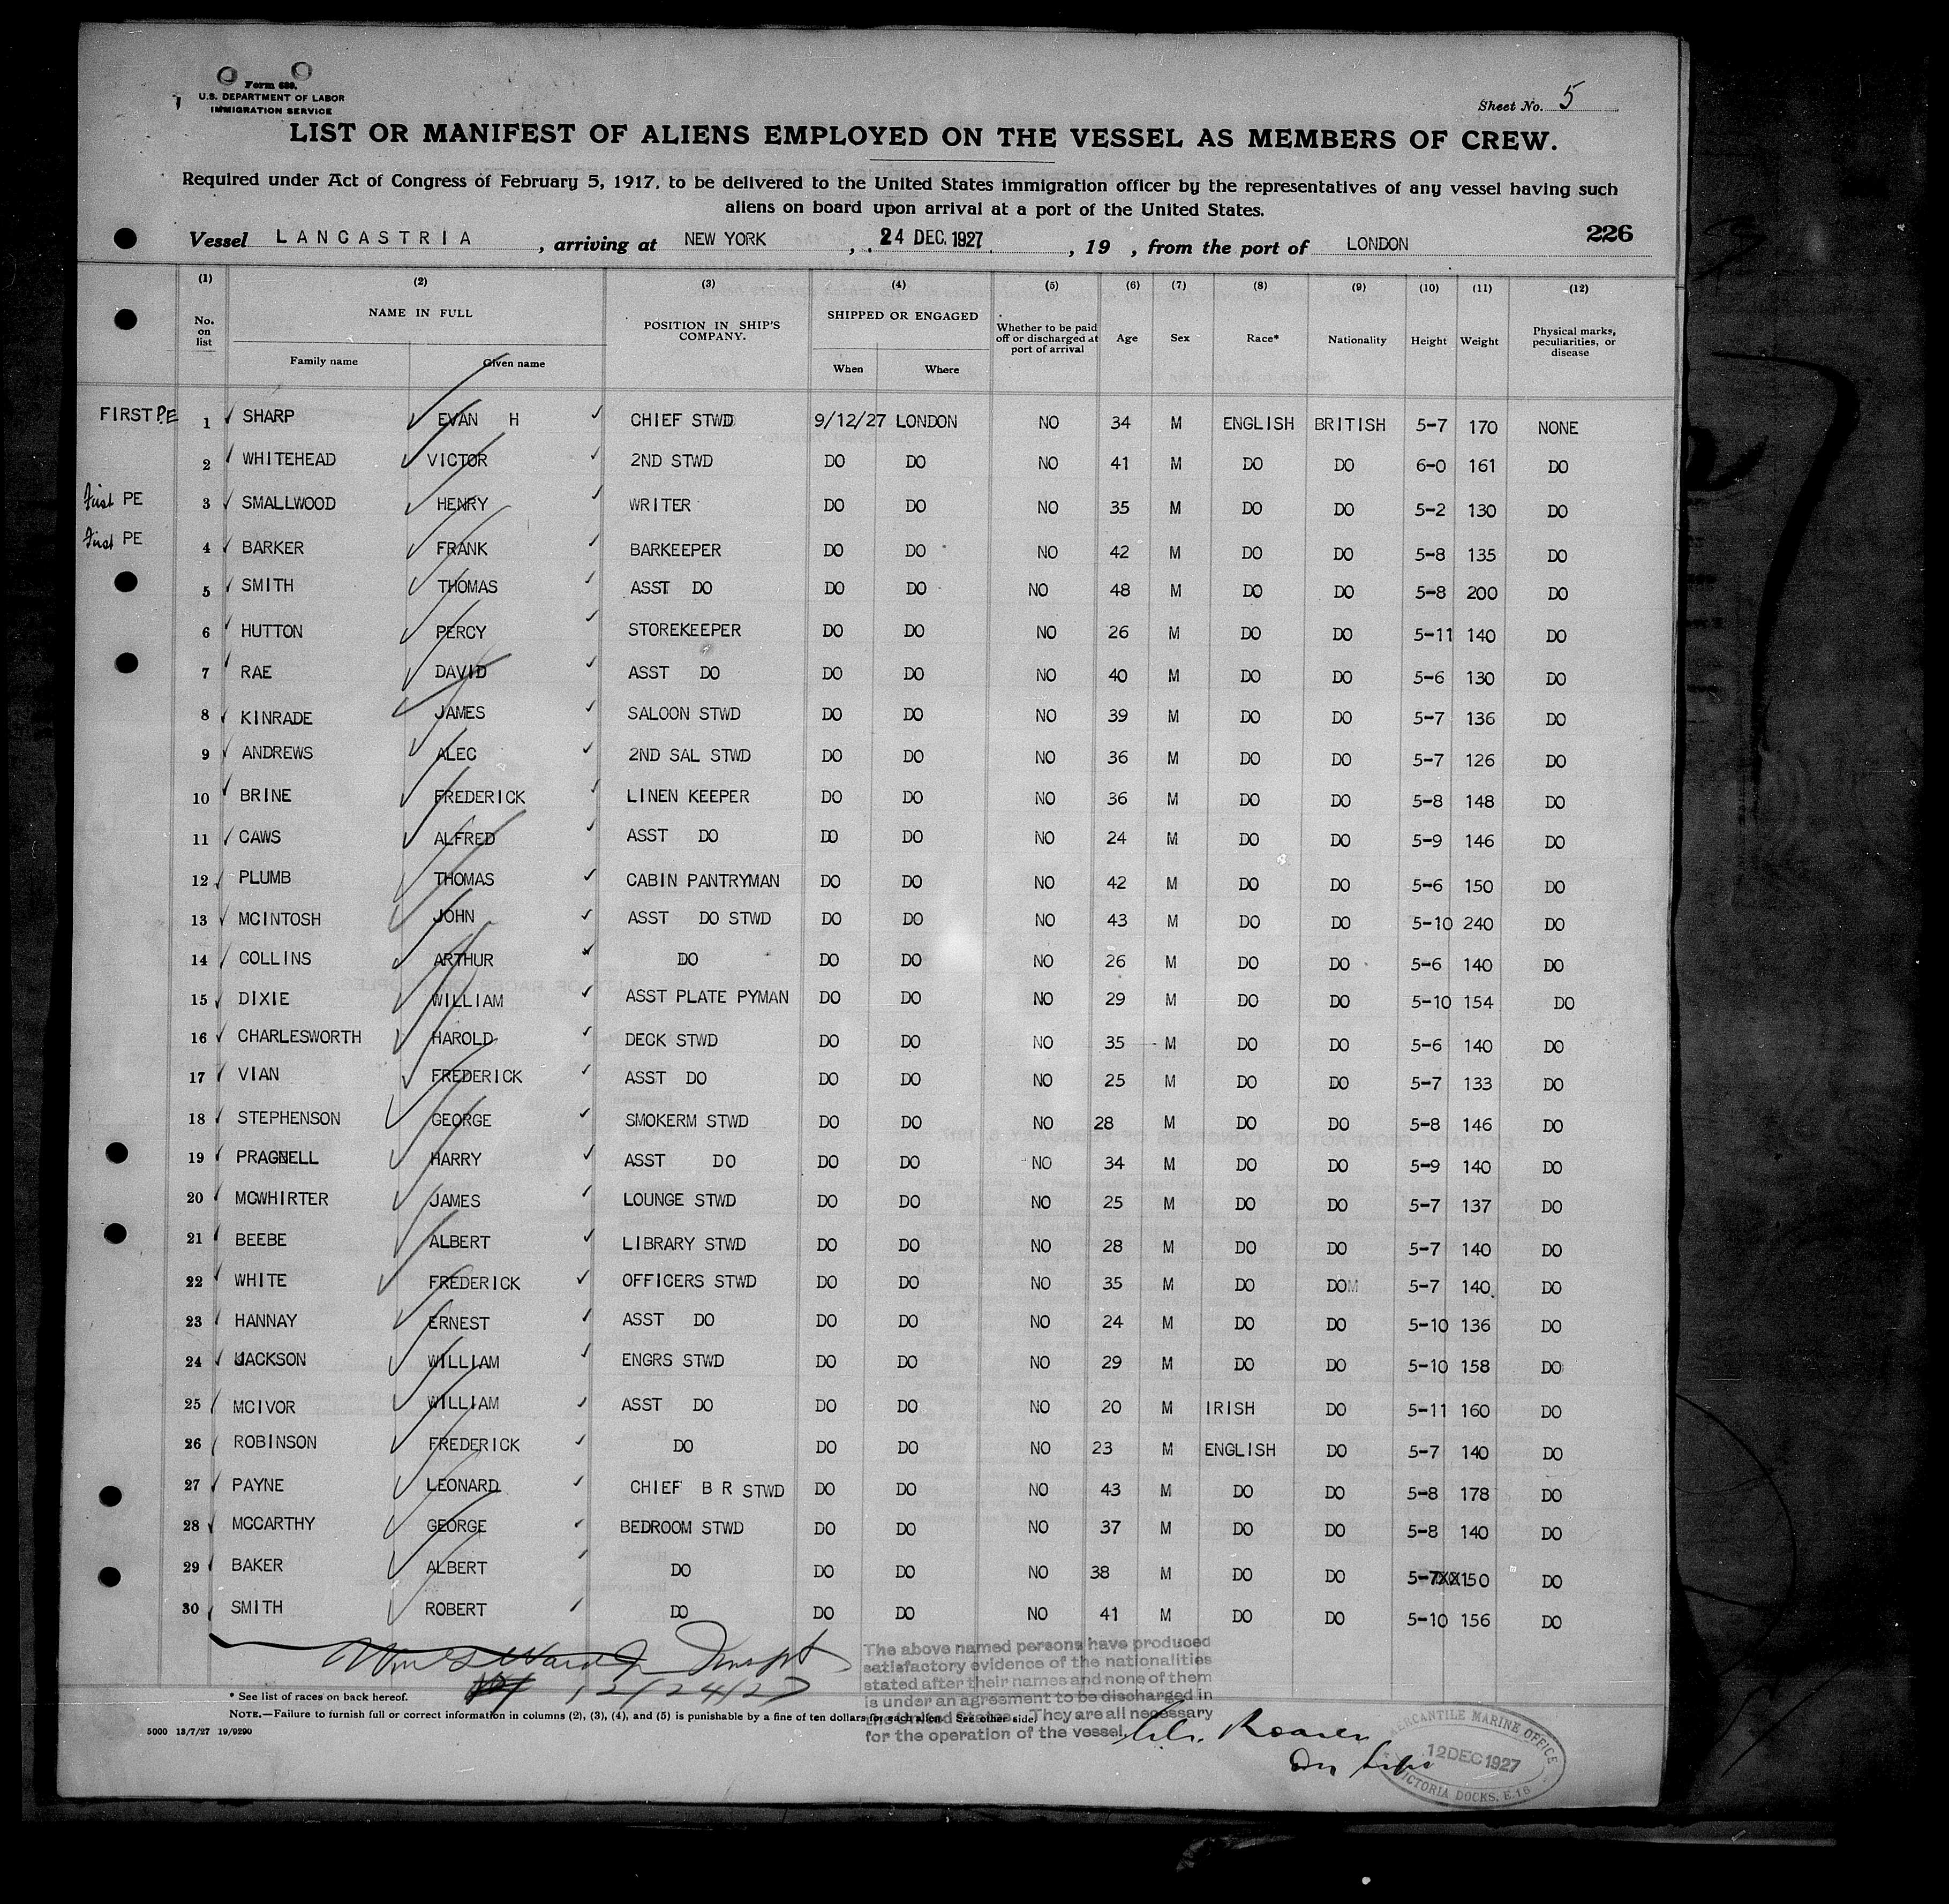 Form 689,
U.S. DEPARTMENT OF LABOR
IMMIGRATION SERVICE
Sheet No. 5
LIST OR MANIFEST OF ALIENS EMPLOYED ON THE VESSEL AS MEMBERS OF CREW.
Required under Act of Congress of February 5, 1917, to be delivered to the United States immigration officer by the representatives of any vessel having such
aliens on board upon arrival at a port of the United States.
226
Vessel LANCASTRIA, arriving at NEW YORK, 24 DEC. 1927, 19 , from the port of LONDON
(1) (2) (3) (4) (5) (6) (7) (8) (9) (10) (11) (12)
No. on list NAME IN FULL Family name Given name POSITION IN SHIP'S COMPANY. SHIPPED OR ENGAGED When Where Whether to be paid off or discharged at port of arrival Age Sex Race* Nationality Height Weight Physical marks, peculiarities, or disease
FIRST P.E 1 SHARP EVAN H CHIEF STWD 9/12/27 LONDON NO 34 M ENGLISH BRITISH 5-7 170 NONE
2 WHITEHEAD VICTOR 2ND STWD DO DO NO 41 M DO DO 6-0 161 DO
First PE 3 SMALLWOOD HENRY WRITER DO DO NO 35 M DO DO 5-2 130 DO
First PE 4 BARKER FRANK BARKEEPER DO DO NO 42 M DO DO 5-8 135 DO
5 SMITH THOMAS ASST DO DO DO NO 48 M DO DO 5-8 200 DO
6 HUTTON PERCY STOREKEEPER DO DO NO 26 M DO DO 5-11 140 DO
7 RAE DAVID ASST DO DO DO NO 40 M DO DO 5-6 130 DO
8 KINRADE JAMES SALOON STWD DO DO NO 39 M DO DO 5-7 136 DO
9 ANDREWS ALEC 2ND SAL STWD DO DO NO 36 M DO DO 5-7 126 DO
10 BRINE FREDERICK LINEN KEEPER DO DO NO 36 M DO DO 5-8 148 DO
11 CAWS ALFRED ASST DO DO DO NO 24 M DO DO 5-9 146 DO
12 PLUMB THOMAS CABIN PANTRYMAN DO DO NO 42 M DO DO 5-6 150 DO
13 MCINTOSH JOHN ASST DO STWD DO DO NO 43 M DO DO 5-10 240 DO
14 COLLINS ARTHUR DO DO DO NO 26 M DO DO 5-6 140 DO
15 DIXIE WILLIAM ASST PLATE PYMAN DO DO NO 29 M DO DO 5-10 154 DO
16 CHARLESWORTH HAROLD DECK STWD DO DO NO 35 M DO DO 5-6 140 DO
17 VIAN FREDERICK ASST DO DO DO NO 25 M DO DO 5-7 133 DO
18 STEPHENSON GEORGE SMOKERM STWD DO DO NO 28 M DO DO 5-8 146 DO
19 PRAGNELL HARRY ASST DO DO DO NO 34 M DO DO 5-9 140 DO
20 MCWHIRTER JAMES LOUNGE STWD DO DO NO 25 M DO DO 5-7 137 DO
21 BEEBE ALBERT LIBRARY STWD DO DO NO 28 M DO DO 5-7 140 DO
22 WHITE FREDERICK OFFICERS STWD DO DO NO 35 M DO DO 5-7 140 DO
23 HANNAY ERNEST ASST DO DO DO NO 24 M DO DO 5-10 136 DO
24 JACKSON WILLIAM ENGRS STWD DO DO NO 29 M DO DO 5-10 158 DO
25 MCIVOR WILLIAM ASST DO DO DO NO 20 M IRISH DO 5-11 160 DO
26 ROBINSON FREDERICK DO DO DO NO 23 M ENGLISH DO 5-7 140 DO
27 PAYNE LEONARD CHIEF B R STWD DO DO NO 43 M DO DO 5-8 178 DO
28 MCCARTHY GEORGE BEDROOM STWD DO DO NO 37 M DO DO 5-8 140 DO
29 BAKER ALBERT DO DO DO NO 38 M DO DO 5-7XX150 DO
30 SMITH ROBERT DO DO DO NO 41 M DO DO 5-10 156 DO
12/24/27
The above named persons have produced
satisfactory evidence of the nationalities
stated after their names and none of them
is under an agreement to be discharged in
the United States. They are all necessary
for the operation of the vessel.
* See list of races on back hereof.
NOTE.—Failure to furnish full or correct information in columns (2), (3), (4), and (5) is punishable by a fine of ten dollars for each alien. See other side.
5000 13/7/27 19/9290
MERCANTILE MARINE OFFICE
12 DEC 1927
VICTORIA DOCKS, E.16